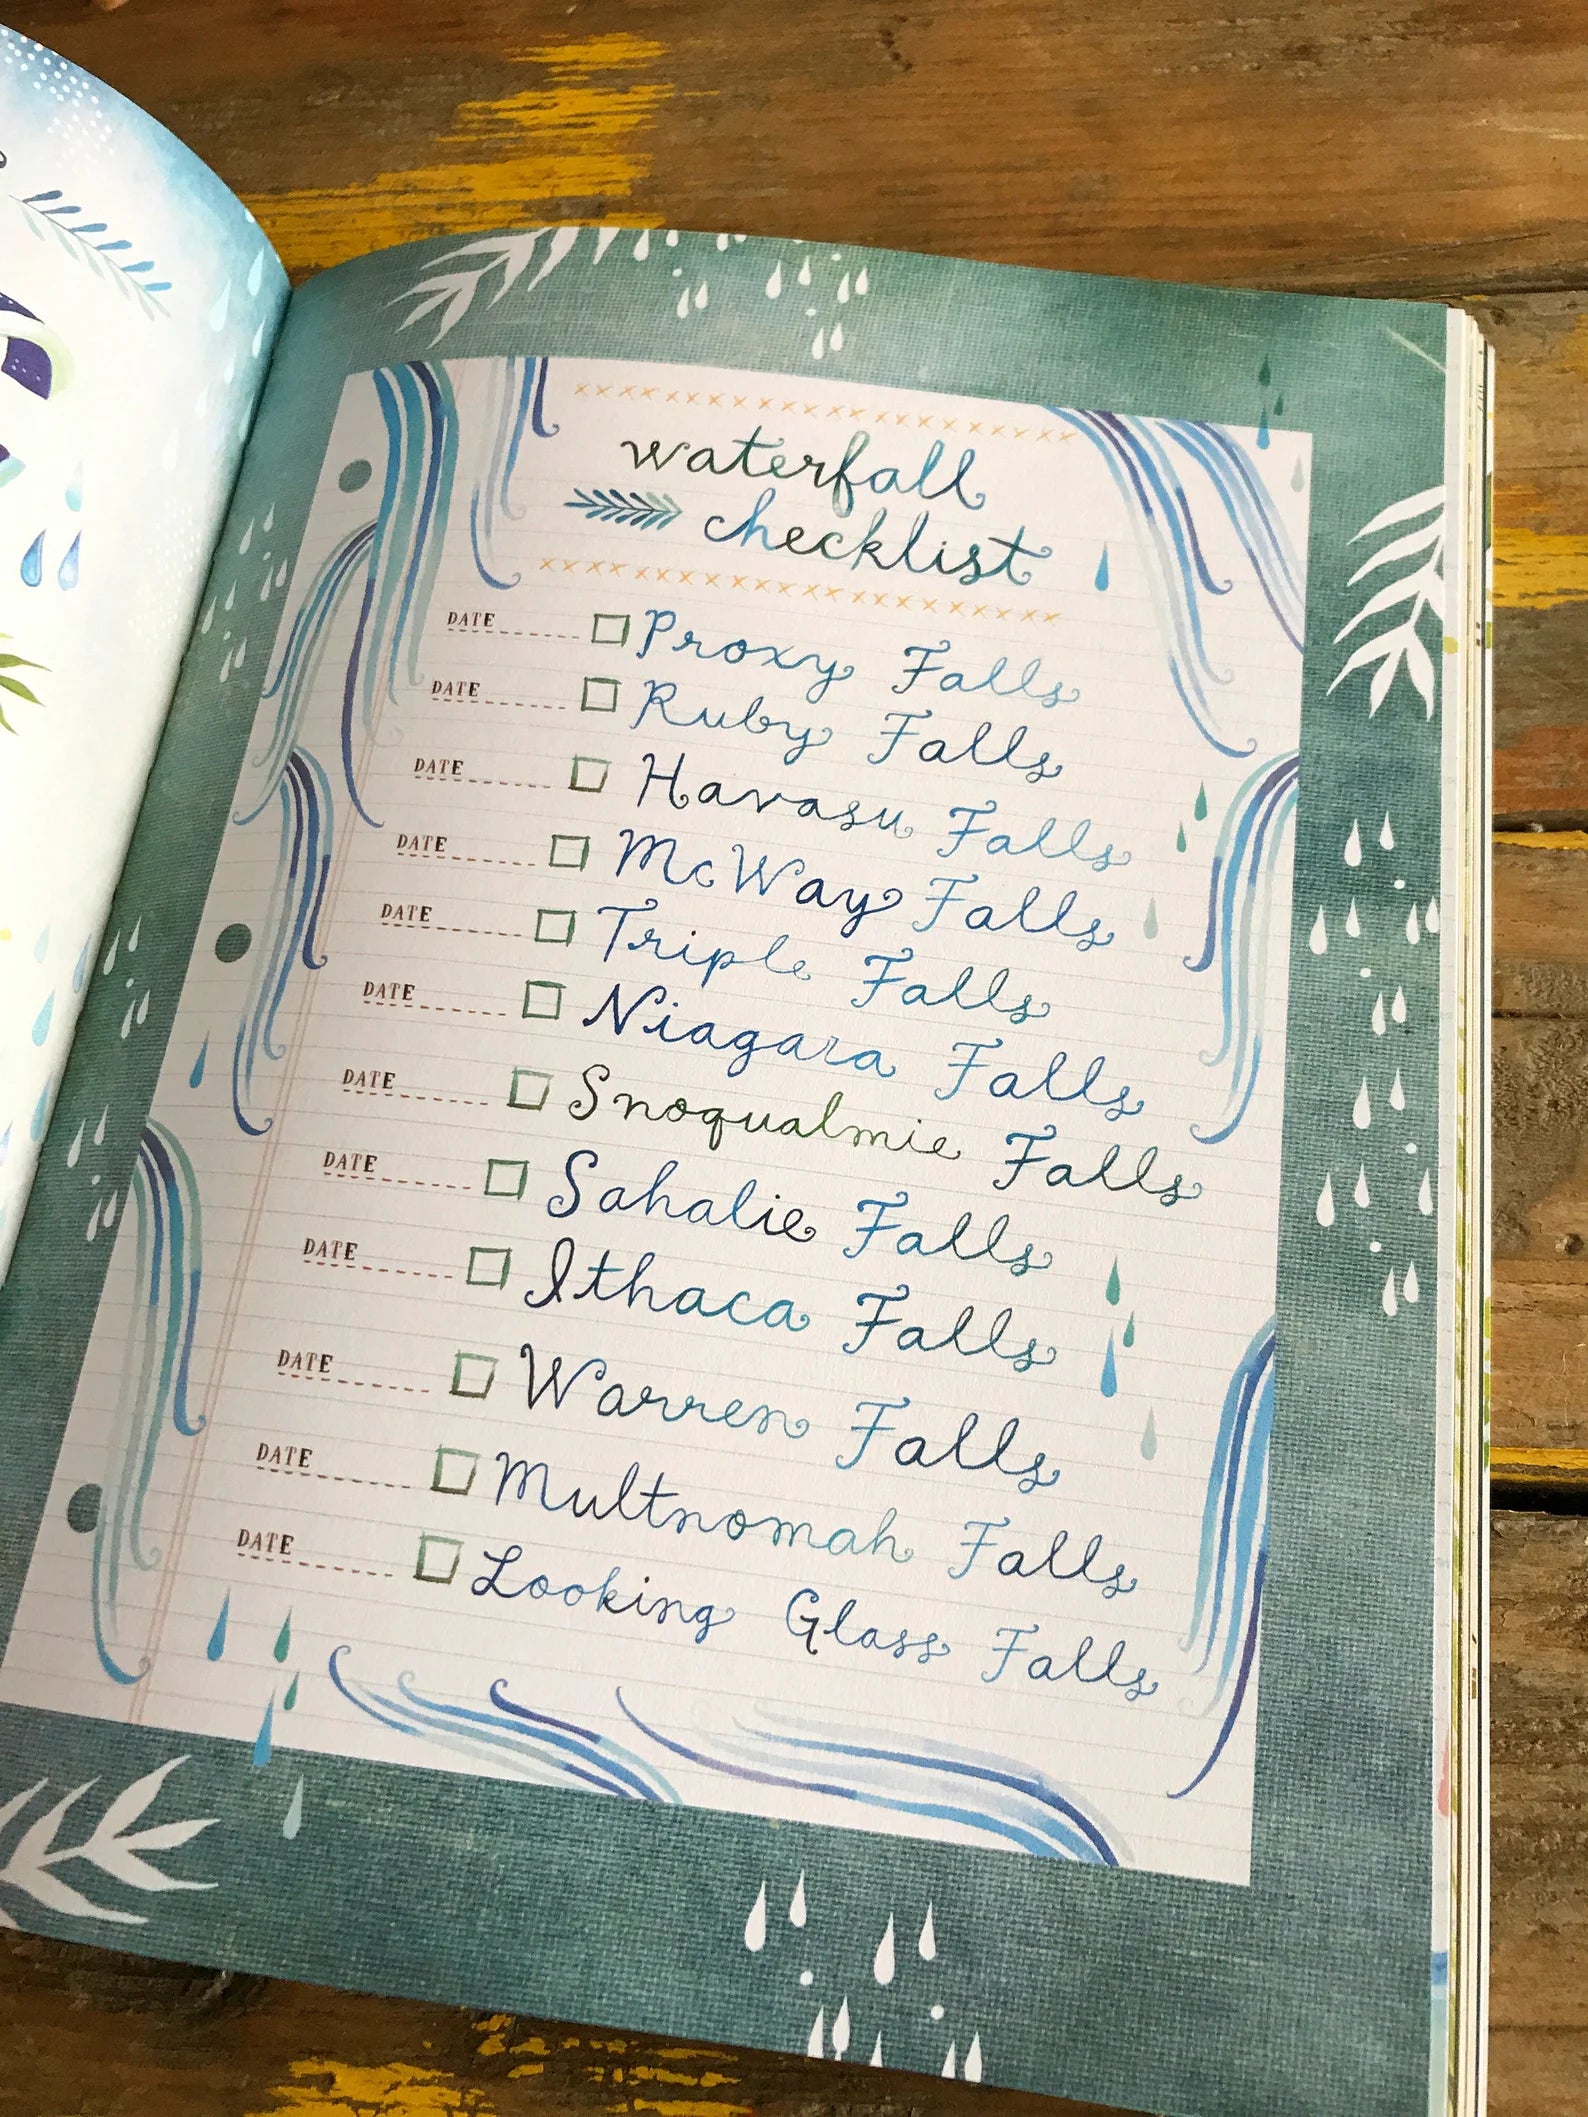 waterfall
checklist
DATE Proxy Falls
DATE Ruby Falls
DATE Havasu Falls
DATE McWay Falls
DATE Triple Falls
DATE Niagara Falls
DATE Snoqualmie Falls
DATE Sahalie Falls
DATE Ithaca Falls
DATE Warren Falls
DATE Multnomah Falls
DATE Looking Glass Falls